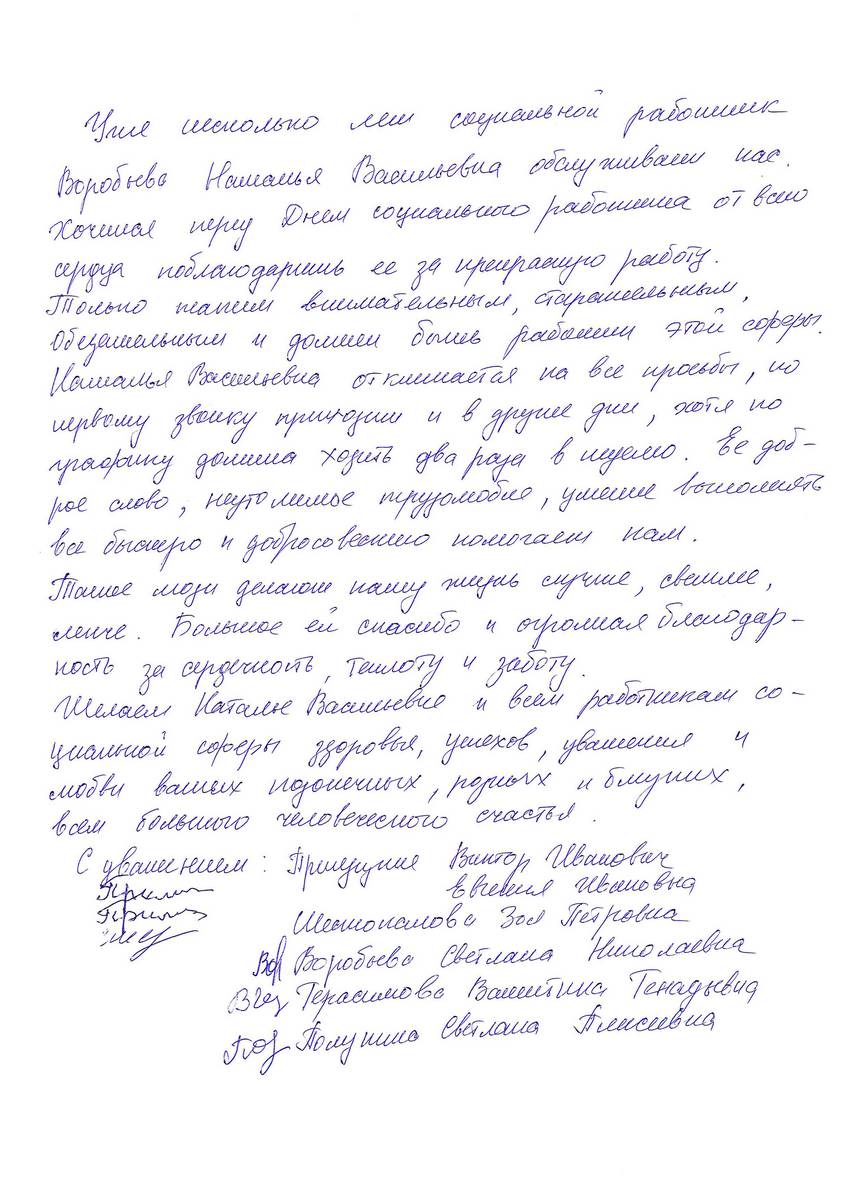 Уже несколько лет социальной работник
Воробьева Наталья Васильевна обслуживает нас.
Хочется перед Днем социального работника от всего
сердца поблагодарить ее за прекрасную работу.
Только таким внимательным, старательным,
обязательным и должен быть работник этой сферы.
Наталья Васильевна откликается на все просьбы, по
первому звонку приходит и в другие дни, хотя по
графику должна ходить два раза в неделю. Ее доб-
рое слово, неутолимые трудолюбие, умение выполнять
все быстро и добросовестно помогает нам.
Такие люди делают нашу жизнь лучше, светлее,
легче. Большое ей спасибо и огромная благодар-
ность за сердечность, теплоту и заботу.
Желаем Наталье Васильевне и всем работникам со-
циальной сферы здоровья, успехов, уважения и
любви ваших подопечных, родных и близких,
всем большого человеческого счастья.
С уважением: Виктор Иванович
Евгения Ивановна
Шестопалова Зоя Петровна
Вор Воробьева Светлана Николаевна
Герасимова Валентина Генадьевна
Полунина Светлана Алексеевна